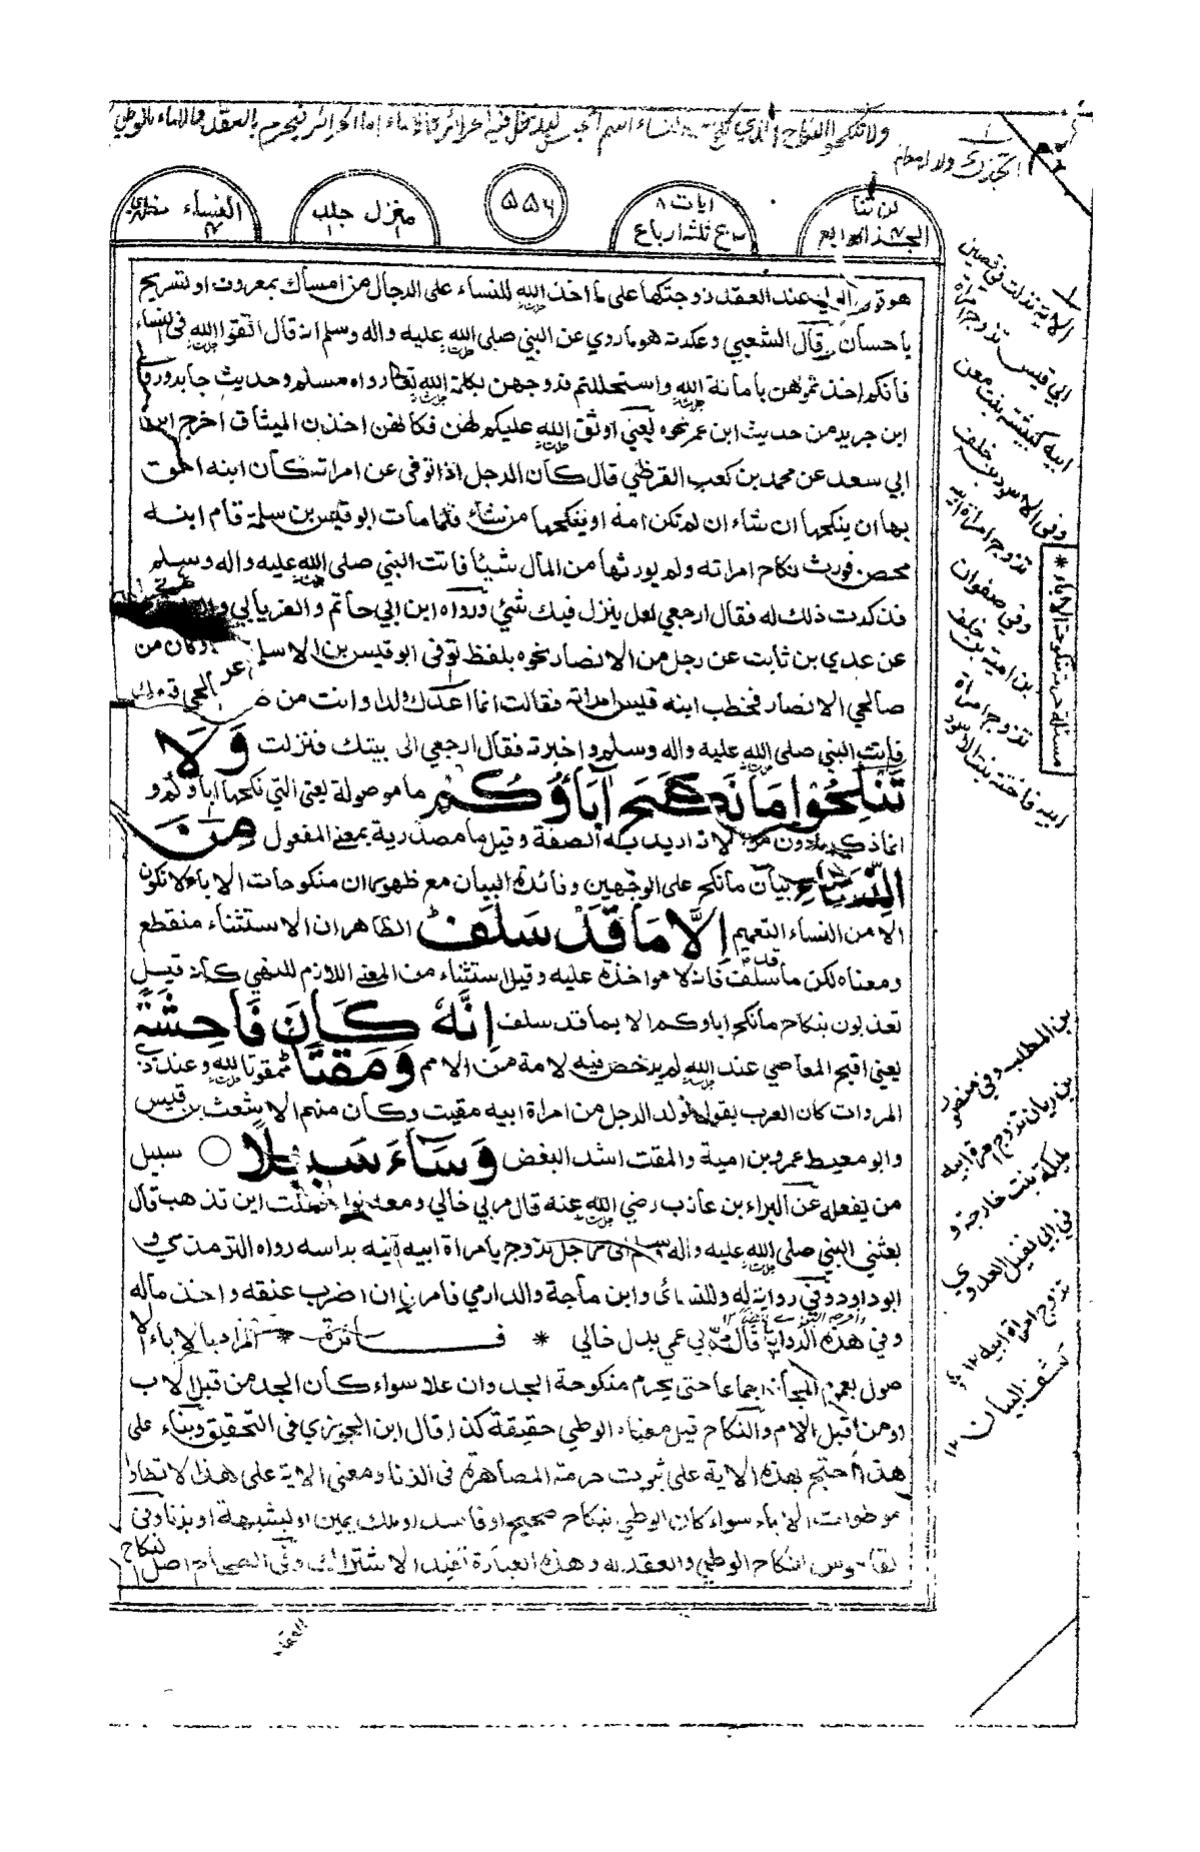 ولا تنكحوا النكاح الذي لنساء اسم فيه الحرائر والاماء اما الحرائر فيحرم بالعقد والاماء بالوطي
لن تنا
الجزء الرابع
ايات ٨
ع ثلثة ارباع
٥٥٦
مغزل جلب
النساء مظهري
٤
هو قول الولي عند العقد زوجتكها على ما اخذ الله للنساء على الرجال من امساك بمعروف او تسريح
باحسان وقال الشعبي وعكرمة هو ما روي عن النبي صلى الله عليه واله وسلم انه قال اتقوا الله في النساء
فانكم اخذتموهن بامانة الله واستحللتم فروجهن بكلمة الله تعالى رواه مسلم وحديث جابر وروى
ابن جرير من حديث ابن عمر نحوه يعني اوثق الله عليكم لهن فكانهن اخذن الميثاق اخرج ابن
ابي سعد عن محمد بن كعب القرظي قال كان الرجل اذا توفى عن امراته كان ابنه احق
بها ان ينكحها ان شاء ان لم تكن امه او ينكحها من شاء فلما مات ابو قيس بن سلمة قام ابنه
محصن فورث نكاح امراته ولم يورثها من المال شيئا فاتت النبي صلى الله عليه واله وسلم
فذكرت ذلك له فقال ارجعي لعل ينزل فيك شئي ورواه ابن ابي حاتم والفريابي
عن عدي بن ثابت عن رجل من الانصار نحوه بلفظ توفى ابو قيس بن الاسلت وكان من
صالحي الانصار فخطب ابنه قيس امراته فقالت انما اعدك ولدا وانت من صالحي قومك
فاتت النبي صلى الله عليه واله وسلم واخبرته فقال ارجعي الى بيتك فنزلت وَلَا
تَنْكِحُوا مَا نَكَحَ آبَاؤُكُمْ ما موصولة يعني التي نكحها اباؤكم و
انما ذكر ما دون من لانه اريد به الصفة وقيل ما مصدرية بمعنى المفعول مِنَ
النِّسَاءِ بيان ما نكح على الوجهين وفائدة البيان مع ظهور ان منكوحات الاباء لا تكون
الا من النساء التعميم اِلَّا مَا قَدْ سَلَفَ الظاهر ان الاستثناء منقطع
ومعناه لكن ما قد سلف فانه لا مواخذة عليه وقيل استثناء من المعنى اللازم للنهي كانه قيل
تعذبون بنكاح ما نكح اباوكم الا بما قد سلف اِنَّهُ كَانَ فَاحِشَةً
يعني اقبح المعاصي عند الله لم يرخص فيه لامة من الامم وَمَقْتًا ممقوتا لله وعند ذوي
المروات كان العرب يقول لولد الرجل من امراة ابيه مقيت وكان منهم الاشعث بن قيس
وابو معيط عمرو بن امية والمقت اشد البغض وَسَاءَ سَبِيْلًا ○ سبيل
من يفعله عن البراء بن عازب رضي الله عنه قال مر بي خالي ومعه لواء فقلت اين تذهب قال
بعثني النبي صلى الله عليه واله وسلم الى رجل تزوج بامراة ابيه آتيه براسه رواه الترمذي و
ابو داود وفي رواية له وللنسائى وابن ماجة والدارمي فامرني ان اضرب عنقه واخذ ماله
وفي هذه الرواية قال مر بي عمي بدل خالي * فائدة * المراد بالاباء الا
صول بعموم المجاز اجماعا حتى يحرم منكوحة الجد وان علا سواء كان الجد من قبل الاب
او من قبل الام والنكاح قيل معناه الوطي حقيقة كذا قال ابن الجوزي في التحقيق وبناء على
هذا احتج بهذه الاية على ثبوت حرمة المصاهرة في الزنا ومعنى الاية على هذا لا تطاوا
موطوات الاباء سواء كان الوطي بنكاح صحيح او فاسد او ملك يمين او بشبهة او بزنا وفي
القاموس النكاح الوطي والعقد له وهذه العبارة تفيد الاشتراك وفي الصحاح اصل النكاح
العقد
الاية نزلت في حصين
ابي قيس تزوج امراة
ابيه كبيشة بنت معن
وفي الاسود بن خلف
تزوج امراة ابيه
وفي صفوان
بن امية بن خلف
تزوج امراة
ابيه فاختة بنت الاسود
* مسئلة حرمة منكوحة الاباء
بن المطلب وفي منصور
بن ريان تزوج امراة ابيه
مليكة بنت خارجة و
في ابي نفيل العدوي
تزوج امراة ابيه ١٢
كشف البيان
١٢